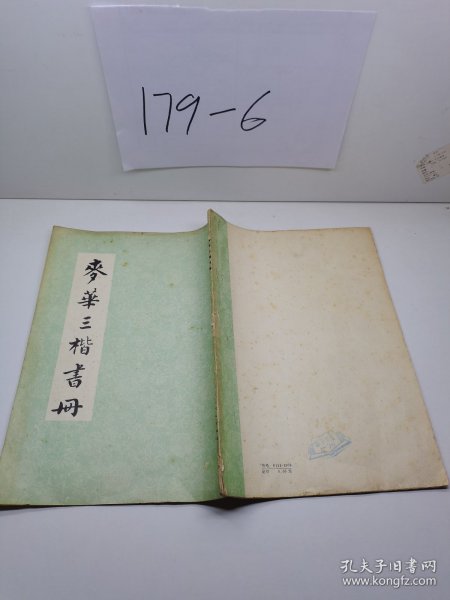 179-6
麥華三楷書冊
孔夫子旧书网
www.kongfz.com